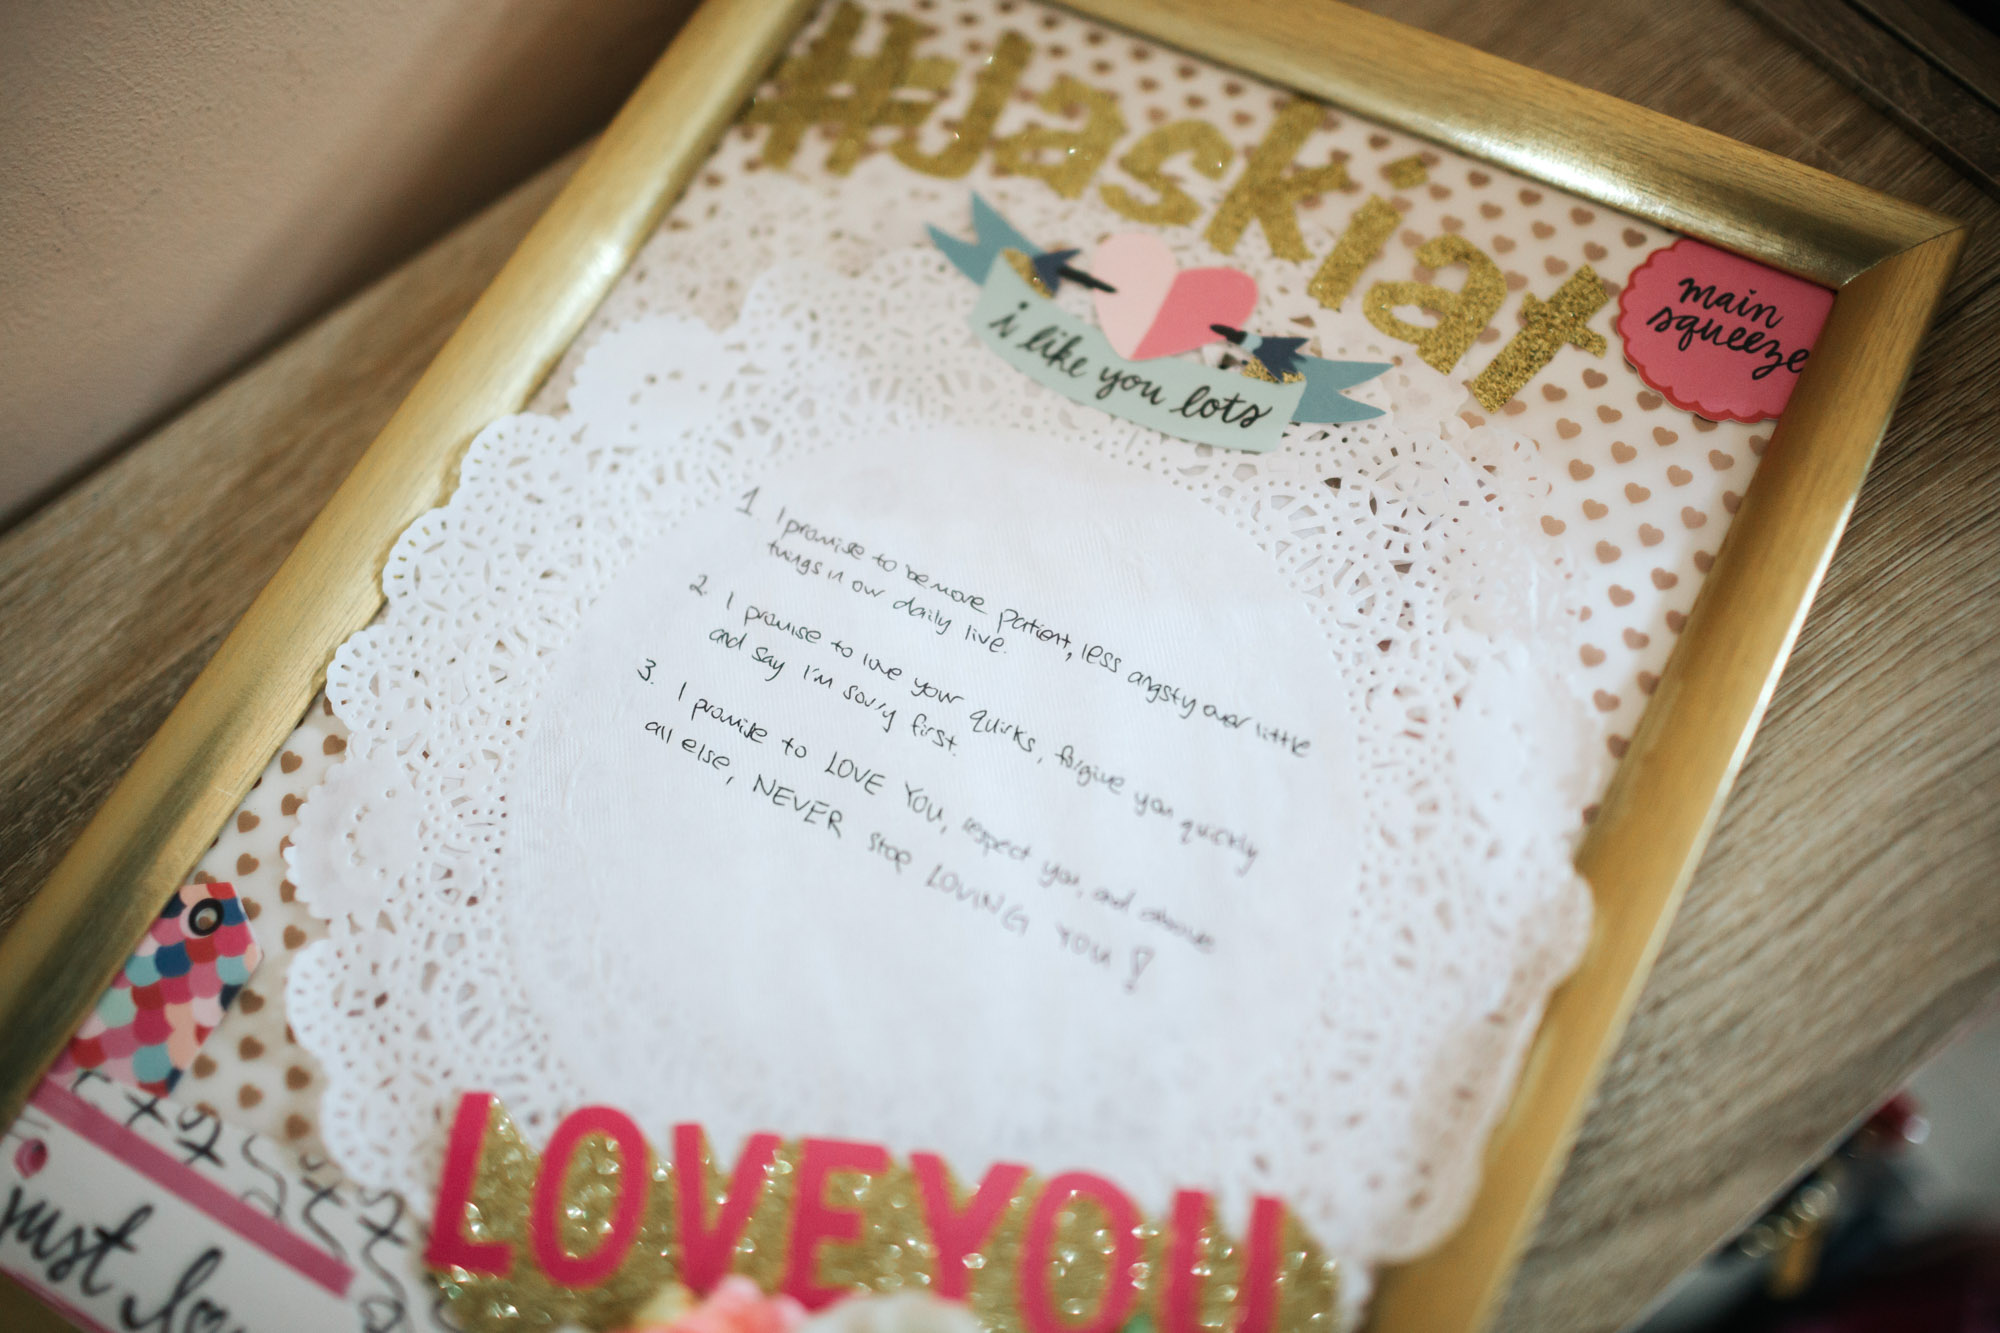 #Jaskiat
main
squeeze
i like you lots
1. I promise to be more patient, less angsty over little
things in our daily live.
2. I promise to love your quirks, forgive you quickly
and say I'm sorry first.
3. I promise to LOVE YOU, respect you, and above
all else, NEVER stop LOVING YOU!
LOVE YOU
just